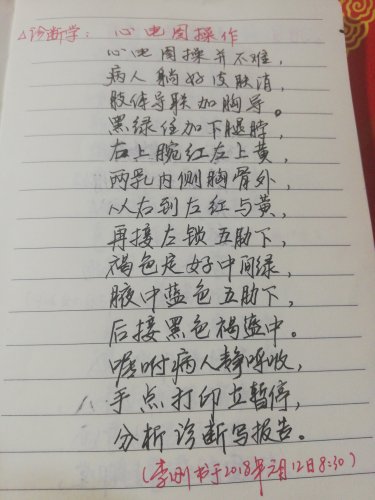 △诊断学：心电图操作
心电图操并不难，
病人躺好皮肤消，
肢体导联加胸导。
黑绿住加下腿脖，
右上腕红左上黄，
两乳内侧胸骨外，
从右到左红与黄，
再接左锁五肋下，
褐色定好中间绿，
腋中蓝色五肋下，
后接黑色褐蓝中。
嘱咐病人静呼吸，
手点打印立暂停，
分析诊断写报告。
(李刚书于2018年元月12日8:30)